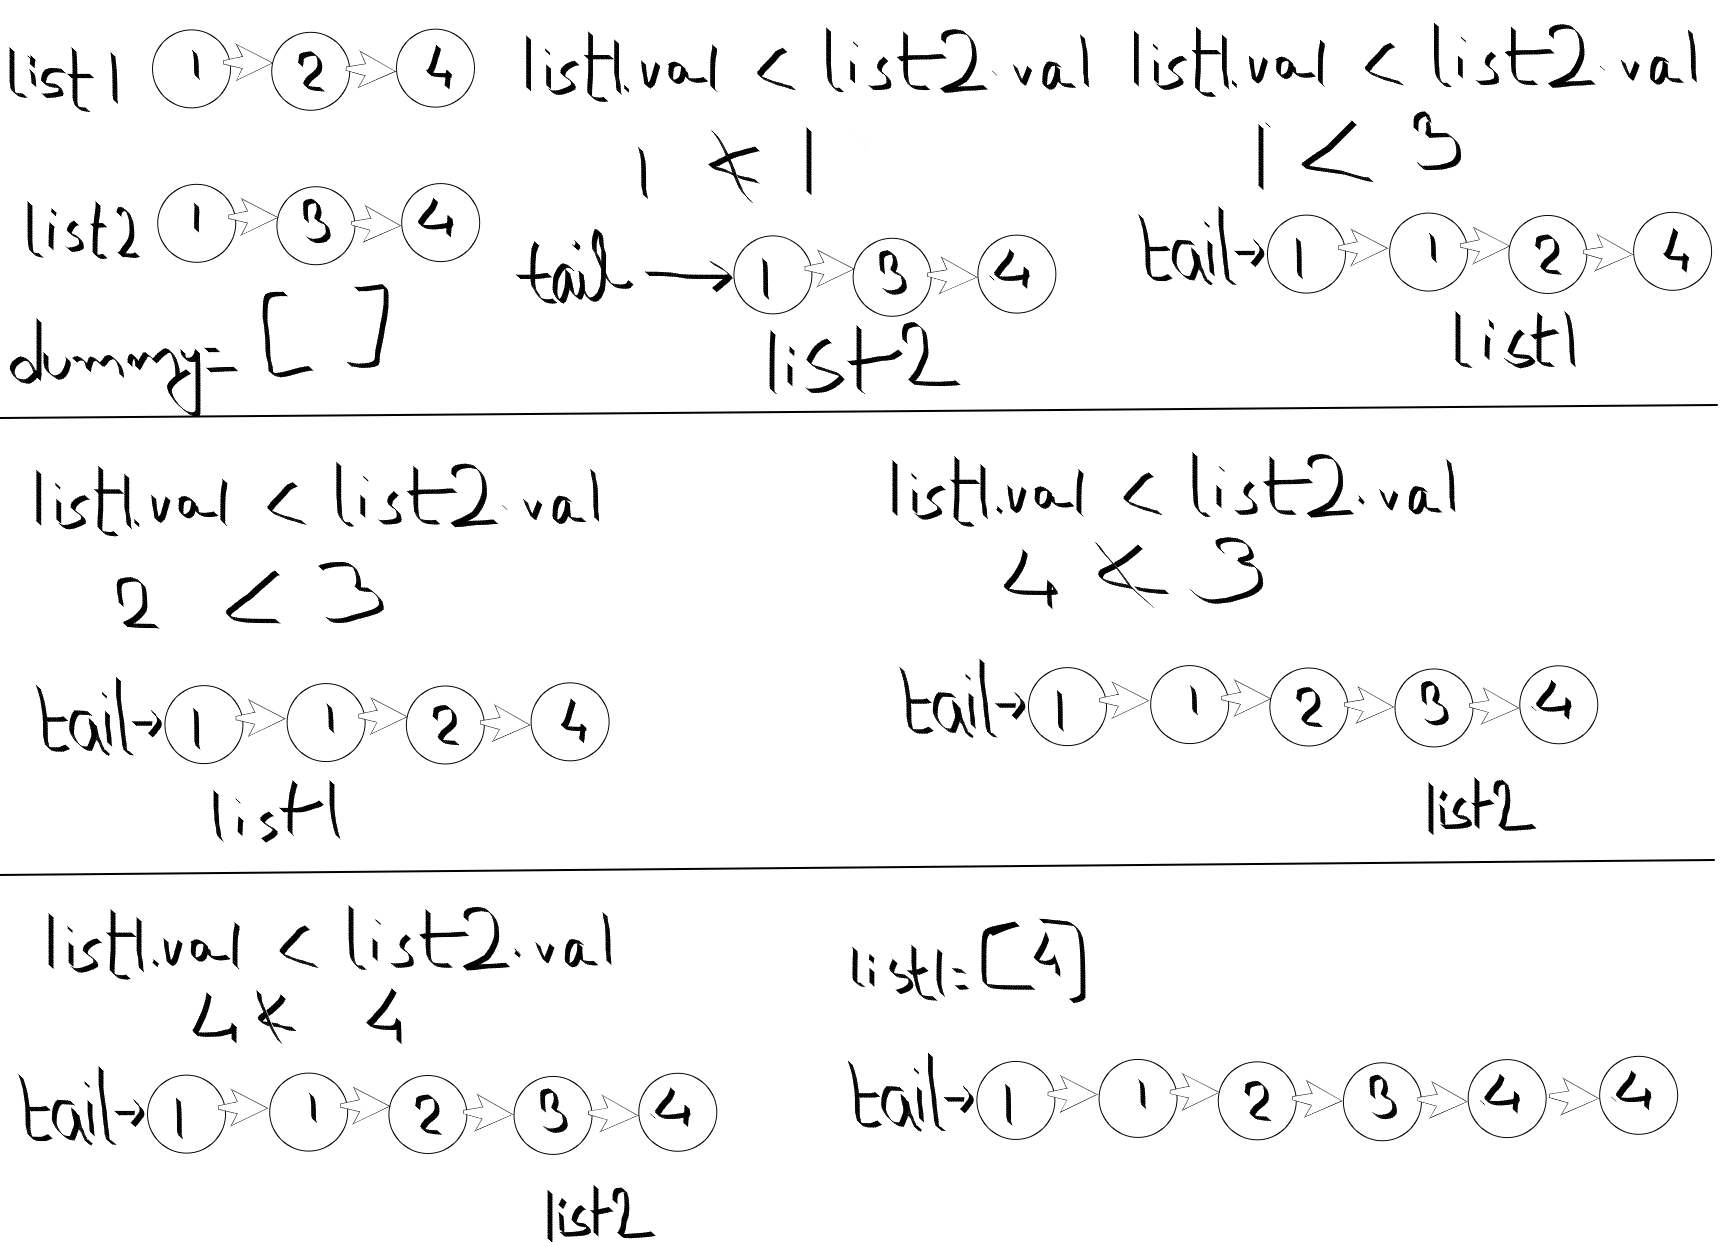 list1 1 2 4
list2 1 3 4
dummy= [ ]
list1.val < list2.val
1 ≮ 1
tail → 1 3 4
list2
list1.val < list2.val
1 < 3
tail→ 1 1 2 4
list1
list1.val < list2.val
2 < 3
tail→ 1 1 2 4
list1
list1.val < list2.val
4 ≮ 3
tail→ 1 1 2 3 4
list2
list1.val < list2.val
4 ≮ 4
tail→ 1 1 2 3 4
list2
list1= [4]
tail→ 1 1 2 3 4 4